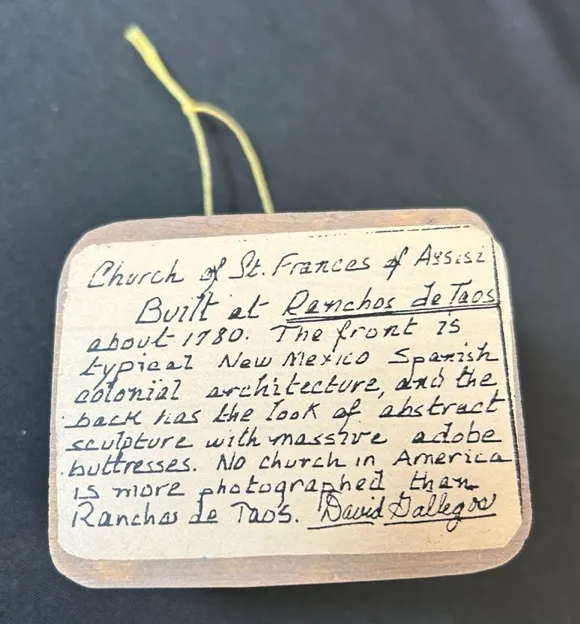 Church of St. Frances of Assisi
Built at Ranchos de Taos
about 1780. The front is
typical New Mexico Spanish
colonial architecture, and the
back has the look of abstract
sculpture with massive adobe
buttresses. No church in America
is more photographed than
Ranchos de Taos. David Gallegos